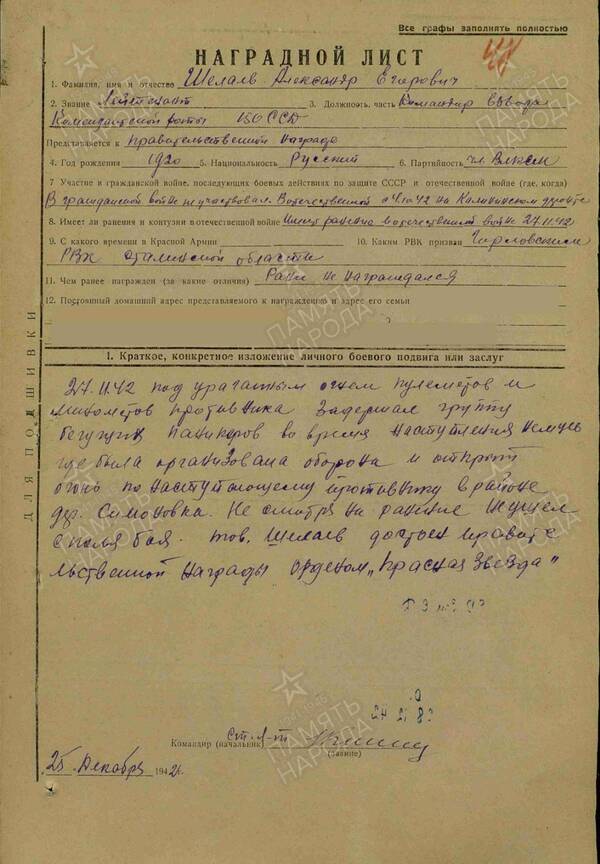 Все графы заполнять полностью
НАГРАДНОЙ ЛИСТ
1. Фамилия, имя и отчество Шелаев Александр Егорович
2. Звание Лейтенант 3. Должность, часть Командир взвода
Комендантской роты
Представляется к правительственной награде
4. Год рождения 1920 5. Национальность Русский 6. Партийность чл. ВЛКСМ
7. Участие в гражданской войне, последующих боевых действиях по защите СССР и отечественной войне (где, когда)
В гражданской войне не участвовал. В отечественной с на Калининском фронте
8. Имеет ли ранения и контузии в отечественной войне Имеет ранение в отечественной войне 27.11.42
9. С какого времени в Красной Армии 10. Каким РВК призван
РВК Сталинской области
11. Чем ранее награжден (за какие отличия) Ранее не награждался
12. Постоянный домашний адрес представляемого к награждению и адрес его семьи
I. Краткое, конкретное изложение личного боевого подвига или заслуг
27.11.42 под ураганным огнем пулеметов и
минометов противника задержал группу
бегущих паникеров во время наступления немцев
где была организована оборона и открыт
огонь по наступающему противнику в районе
дер. Симоновка. Не смотря на ранение не ушел
с поля боя. тов. Шелаев достоен правите
льственной награды орденом „Красная звезда"
Ст. л-т
Командир (начальник)
(звание)
25 Декабря 1942г.
ДЛЯ ПОДШИВКИ
ПАМЯТЬ НАРОДА